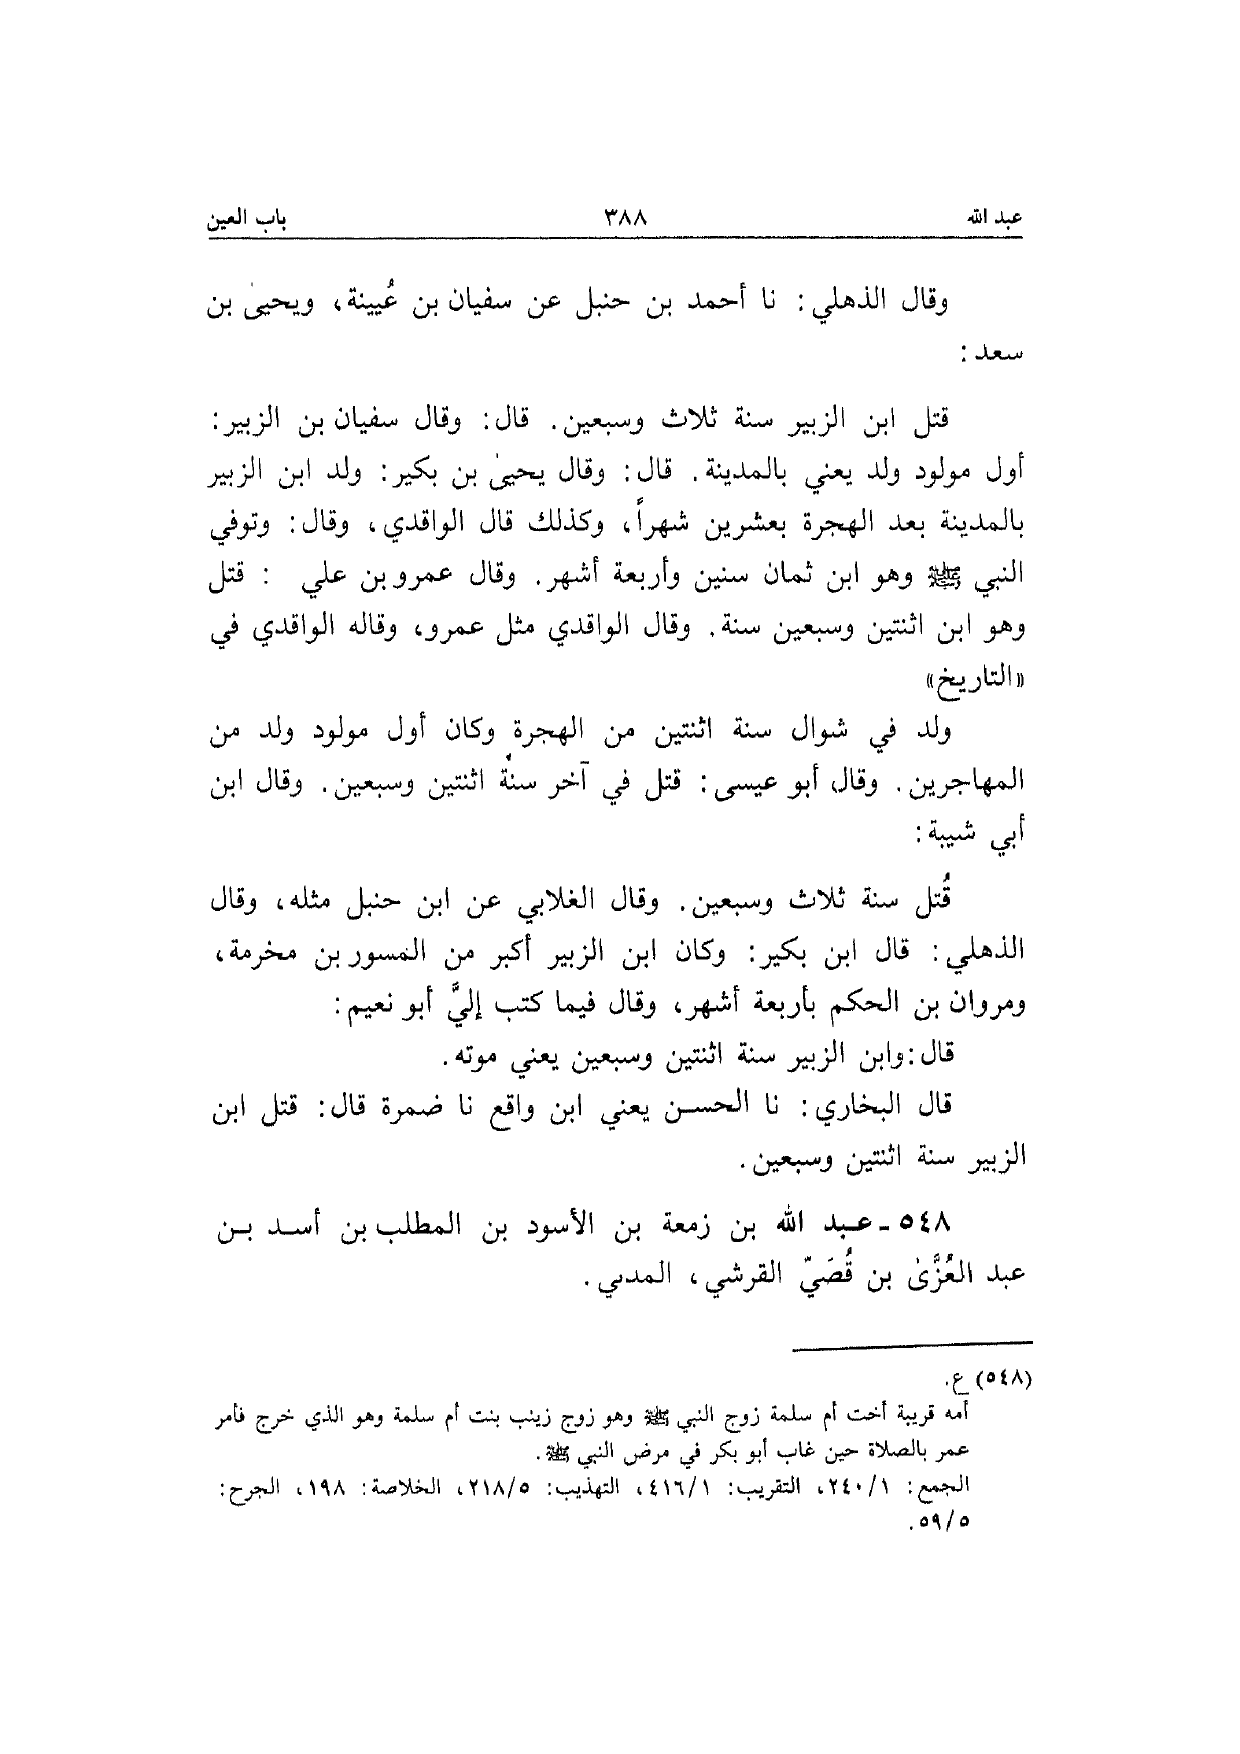 عبد الله ٣٨٨ باب العين
وقال الذهلي: نا أحمد بن حنبل عن سفيان بن عُيينة، ويحيىٰ بن
سعد:
قتل ابن الزبير سنة ثلاث وسبعين. قال: وقال سفيان بن الزبير:
أول مولود ولد يعني بالمدينة. قال: وقال يحيىٰ بن بكير: ولد ابن الزبير
بالمدينة بعد الهجرة بعشرين شهراً، وكذلك قال الواقدي، وقال: وتوفي
النبي ﷺ وهو ابن ثمان سنين وأربعة أشهر. وقال عمرو بن علي : قتل
وهو ابن اثنتين وسبعين سنة. وقال الواقدي مثل عمرو، وقاله الواقدي في
«التاريخ»
ولد في شوال سنة اثنتين من الهجرة وكان أول مولود ولد من
المهاجرين. وقال أبو عيسى: قتل في آخر سنة اثنتين وسبعين. وقال ابن
أبي شيبة:
قُتل سنة ثلاث وسبعين. وقال الغلابي عن ابن حنبل مثله، وقال
الذهلي: قال ابن بكير: وكان ابن الزبير أكبر من المسور بن مخرمة،
ومروان بن الحكم بأربعة أشهر، وقال فيما كتب إليَّ أبو نعيم:
قال: وابن الزبير سنة اثنتين وسبعين يعني موته.
قال البخاري: نا الحسن يعني ابن واقع نا ضمرة قال: قتل ابن
الزبير سنة اثنتين وسبعين.
٥٤٨ ـ عبد الله بن زمعة بن الأسود بن المطلب بن أسد بن
عبد العُزَّىٰ بن قُصَيّ القرشي، المدني.
(٥٤٨) ع.
أمه قريبة أخت أم سلمة زوج النبي ﷺ وهو زوج زينب بنت أم سلمة وهو الذي خرج فأمر
عمر بالصلاة حين غاب أبو بكر في مرض النبي ﷺ.
الجمع: ٢٤٠/١، التقريب: ٤١٦/١، التهذيب: ٢١٨/٥، الخلاصة: ١٩٨، الجرح:
٥٩/٥.